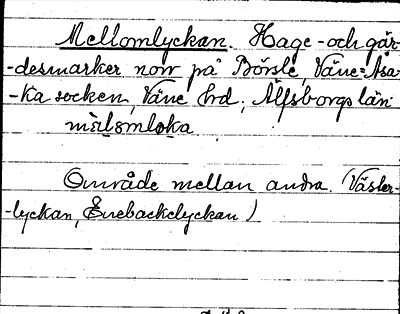 Mellomlyckan. Hage- och går-
-desmarker norr på Börsle, Väne=Åsa
-ka socken, Väne hrd, Älfsborgs län
mälömloka
Område mellan andra. (Väster-
-lyckan, Enebackelyckan)